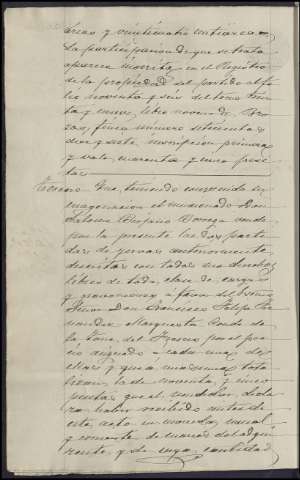 áreas y veintiocho centiáreas.
La participación de que se trata
aparece inscrita en el Registro
de la propiedad al partido al fo-
lio noventa y seis del tomo trein-
ta y nueve, libro noveno de
finca número setecientos
diez y siete inscripción primera
y vale cuarenta y cinco pese-
tas.
Tercero Que, teniendo convenida su
enagenación el mencionado Don
vende
por la presente las dos parti-
das de yervas anteriormente
descritas con todos sus derechos
libres de toda clase de cargas
y gravámenes a favor del Excmo
Señor Don Francisco Felipe
Conde de
la Torre del Fresno por el pre-
cio asignado a cada una de
ellas y que a una suma tota-
lizan, la de noventa y cinco
pesetas que el vendedor decla-
ra haber recibido antes de
este acto en moneda usual
y corriente de manos del adqui-
rente, y de cuya cantidad